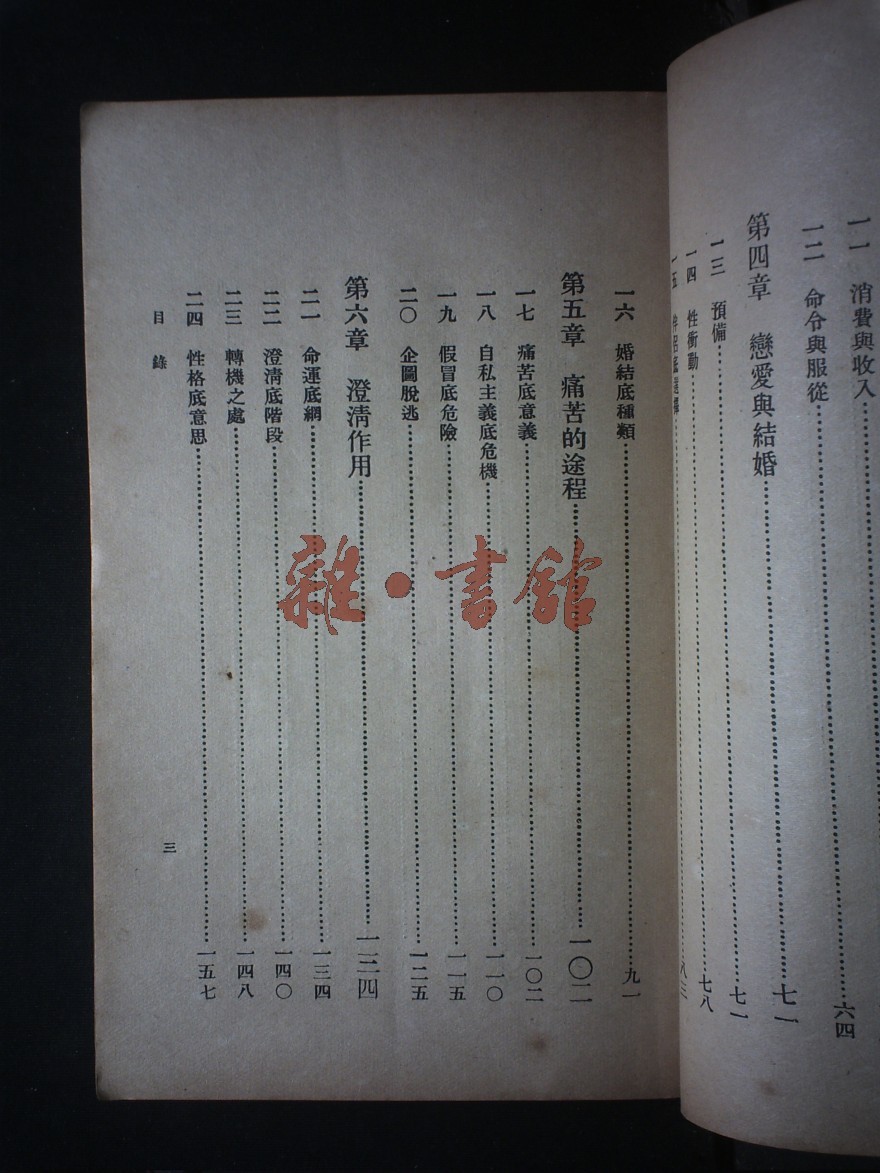 一一 消費與收入
一二 命令與服從……六四
第四章 戀愛與結婚……七一
一三 預備……七一
一四 性衝動……七八
一五
八三
一六 婚結底種類……九一
第五章 痛苦的途程……一〇二
一七 痛苦底意義……一〇二
一八 自私主義底危機……一一〇
一九 假冒底危險……一一五
二〇 企圖脫逃……一二五
第六章 澄淸作用……一二四
二一 命運底網……一三四
二二 澄淸底階段……一四〇
二三 轉機之處……一四八
二四 性格底意思……一五七
目錄
三
雜·書館